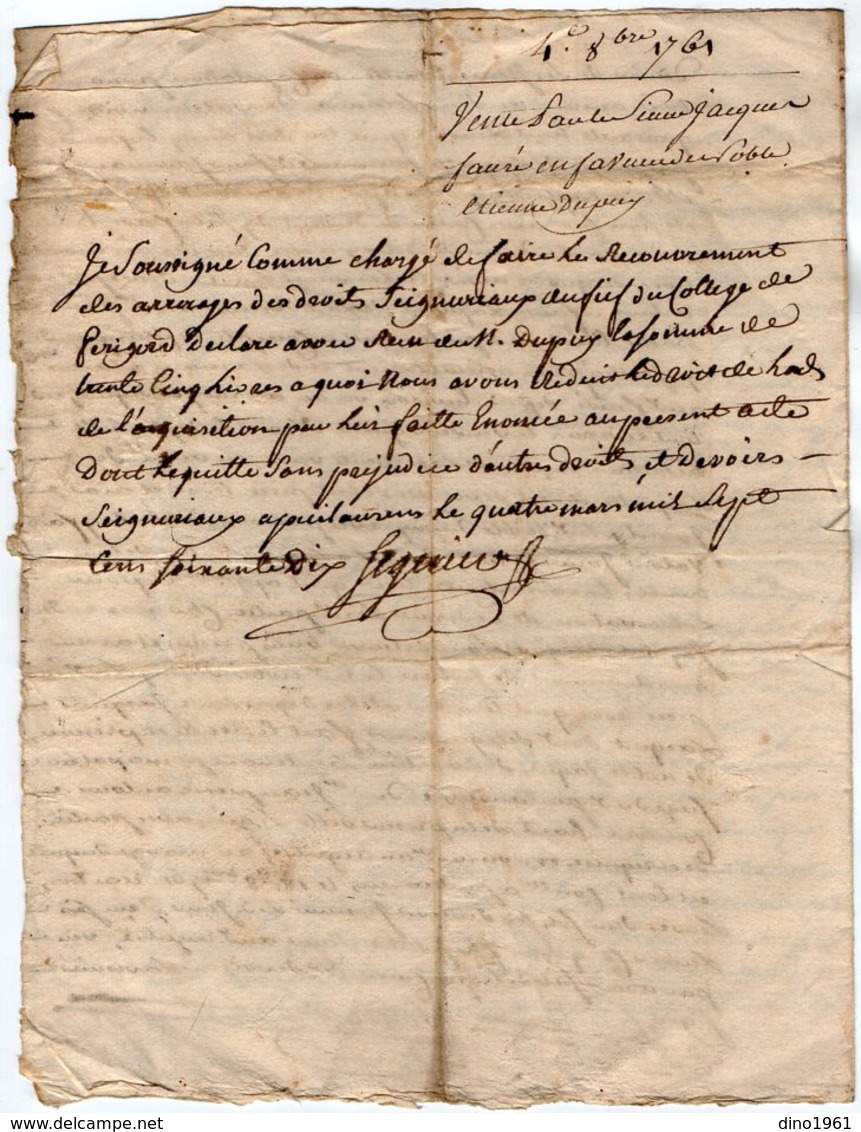 4e. 8bre 1761
Vente Par le Sieur Jacques
faure en faveur de Noble
etienne Dupuy
Je Soussigné Comme chargé de faire le Recouvrement
des arrerages des droits Seigneuriaux du fief du College de
Perigord Declare avoir Receu de M. Dupuy la somme de
trente Cinq Livres a quoi Nous avons Reduit le droit de Lods
de l'aquisition par lui faitte Enoncée au present acte
Dont le quitte Sans prejudice d'autres droits et Devoirs –
Seigneuriaux a puilaurens le quatre mars mil Sept
Cens soixante Dix Seguier
dino1961